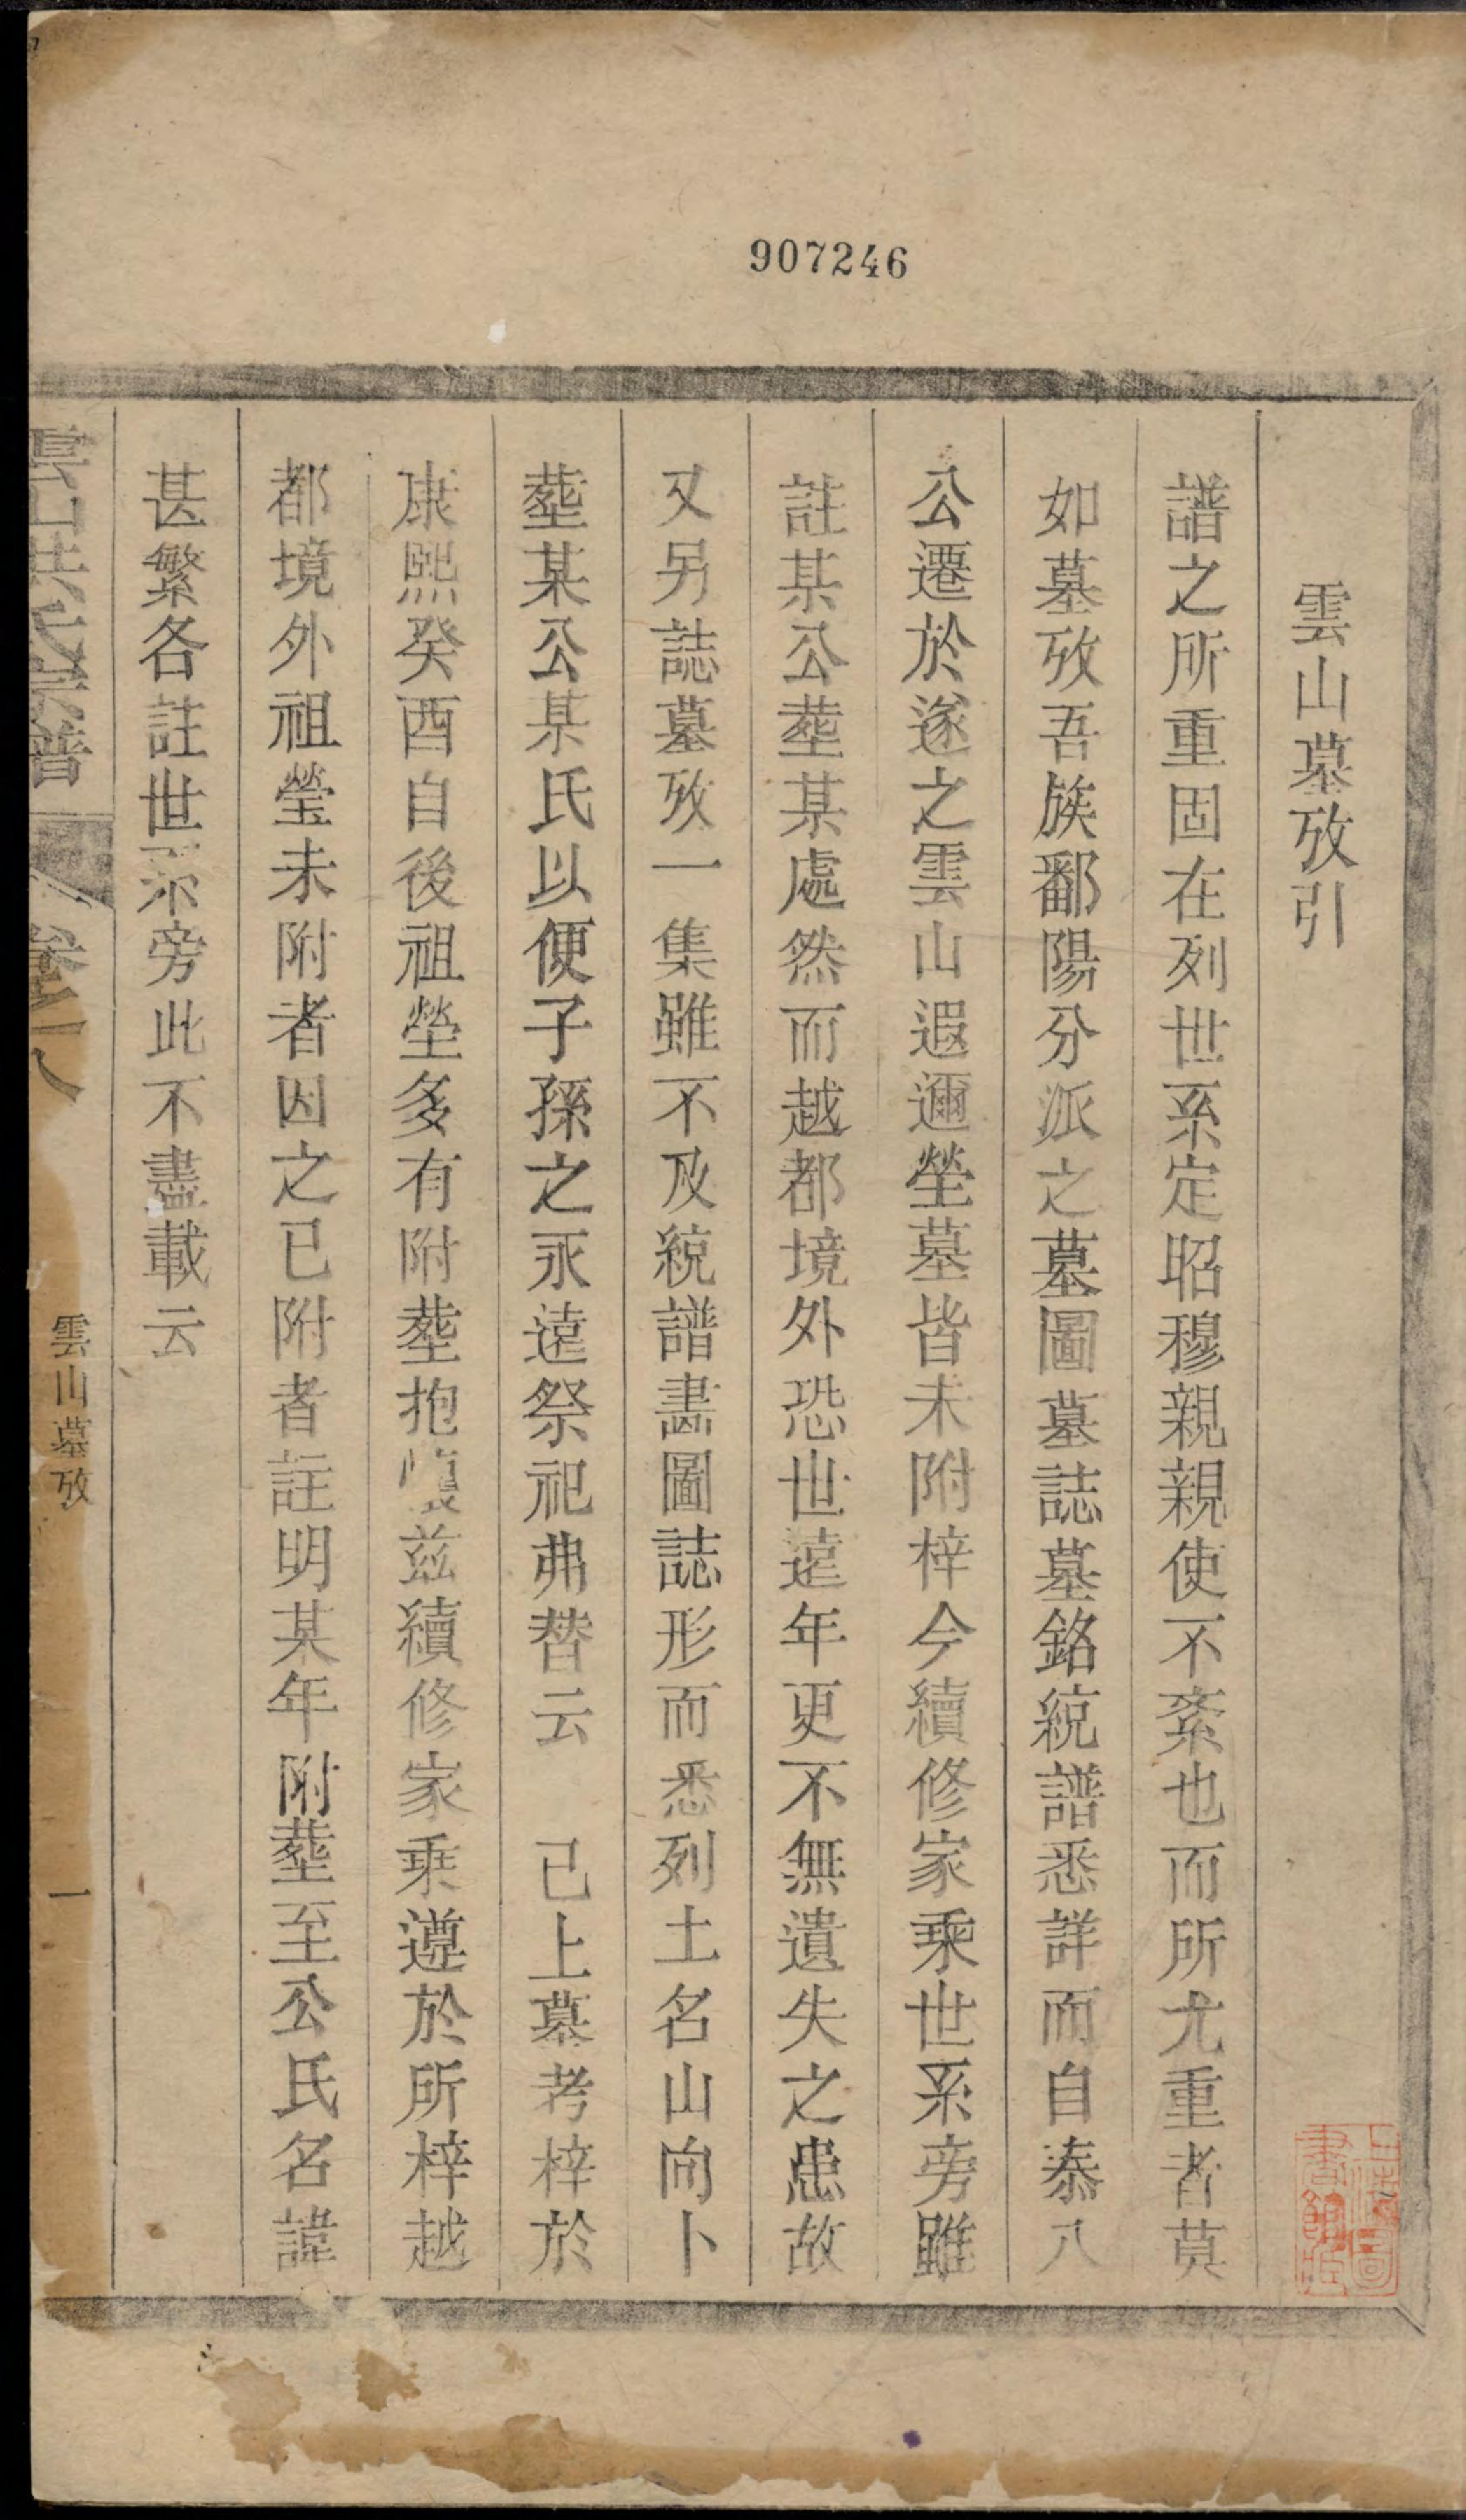 907246
雲山墓攷引
譜之所重固在列世系定昭穆親親使不紊也而所尤重者莫
如墓攷吾族鄱陽分派之墓圖墓誌墓銘統譜悉詳而自泰八
公遷於遂之雲山遐邇塋墓皆未附梓今續修家乘世系旁雖
註某公塟某處然而越都境外恐世遠年更不無遺失之患故
又另誌墓攷一集雖不及統譜畵圖誌形而悉列土名山向卜
塟某公某氏以便子孫之永遠祭祀弗替云　已上墓考梓於
康熙癸酉自後祖塋多有附塟抱恨茲續修家乗遵於所梓越
都境外祖瑩未附者因之已附者註明某年附塟至公氏名諱
甚繁各註世系旁此不盡載云
雲山洪氏宗譜
卷一八
雲山墓攷
一
上海圖書館藏